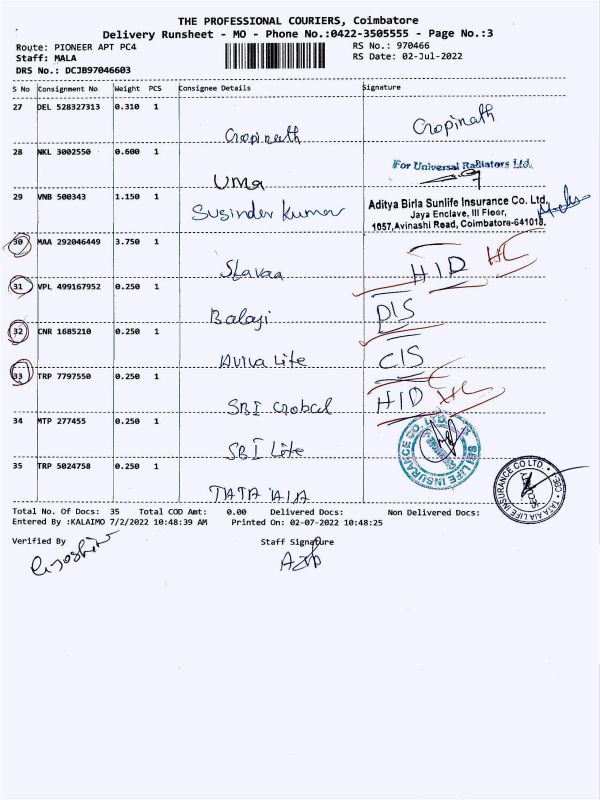 THE PROFESSIONAL COURIERS, Coimbatore
Delivery Runsheet - MO - Phone No.:0422-3505555 - Page No.:3
Route: PIONEER APT PC4 RS No.: 970466
Staff: MALA RS Date: 02-Jul-2022
DRS No.: DCJB97046603
S No Consignment No Weight PCS Consignee Details Signature
27 DEL 528327313 0.310 1
Gopinath Gopinath
28 NKL 3002550 0.600 1
For Universal Radiators Ltd.
Uma
29 VNB 500343 1.150 1
Susinder Kumar
Aditya Birla Sunlife Insurance Co. Ltd.
Jaya Enclave, III Floor,
1057,Avinashi Road, Coimbatore-641018.
30 MAA 292046449 3.750 1
HID HC
31 VPL 499167952 0.250 1
Balaji DIS
32 CNR 1685210 0.250 1
Aviva Life CIS
33 TRP 7797550 0.250 1
SBI Global HID HC
34 MTP 277455 0.250 1
SBI Life
SBI LIFE INSURANCE CO. LTD
35 TRP 5024758 0.250 1
TATA AIA
TATA AIA LIFE INSURANCE CO LTD.
Total No. Of Docs: 35 Total COD Amt: 0.00 Delivered Docs: Non Delivered Docs:
Entered By :KALAIMO 7/2/2022 10:48:39 AM Printed On: 02-07-2022 10:48:25
Verified By Staff Signature